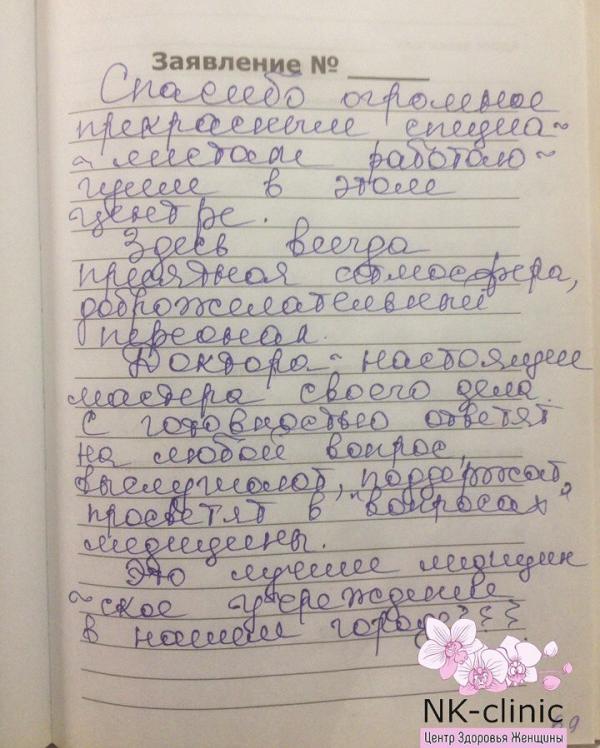 Заявление № ______
Спасибо огромное
прекрасным специа~
~листам работаю~
щим в этом
центре.
Здесь всегда
приятная атмосфера,
доброжелательный
персонал.
Доктора - настоящие
мастера своего дела.
С готовностью ответят
на любой вопрос,
выслушают, поддержат,
просветят в "вопросах"
медицины.
Это лучшее медицин
~ское учреждение
в нашем городе}}}
NK-clinic
Центр Здоровья Женщины